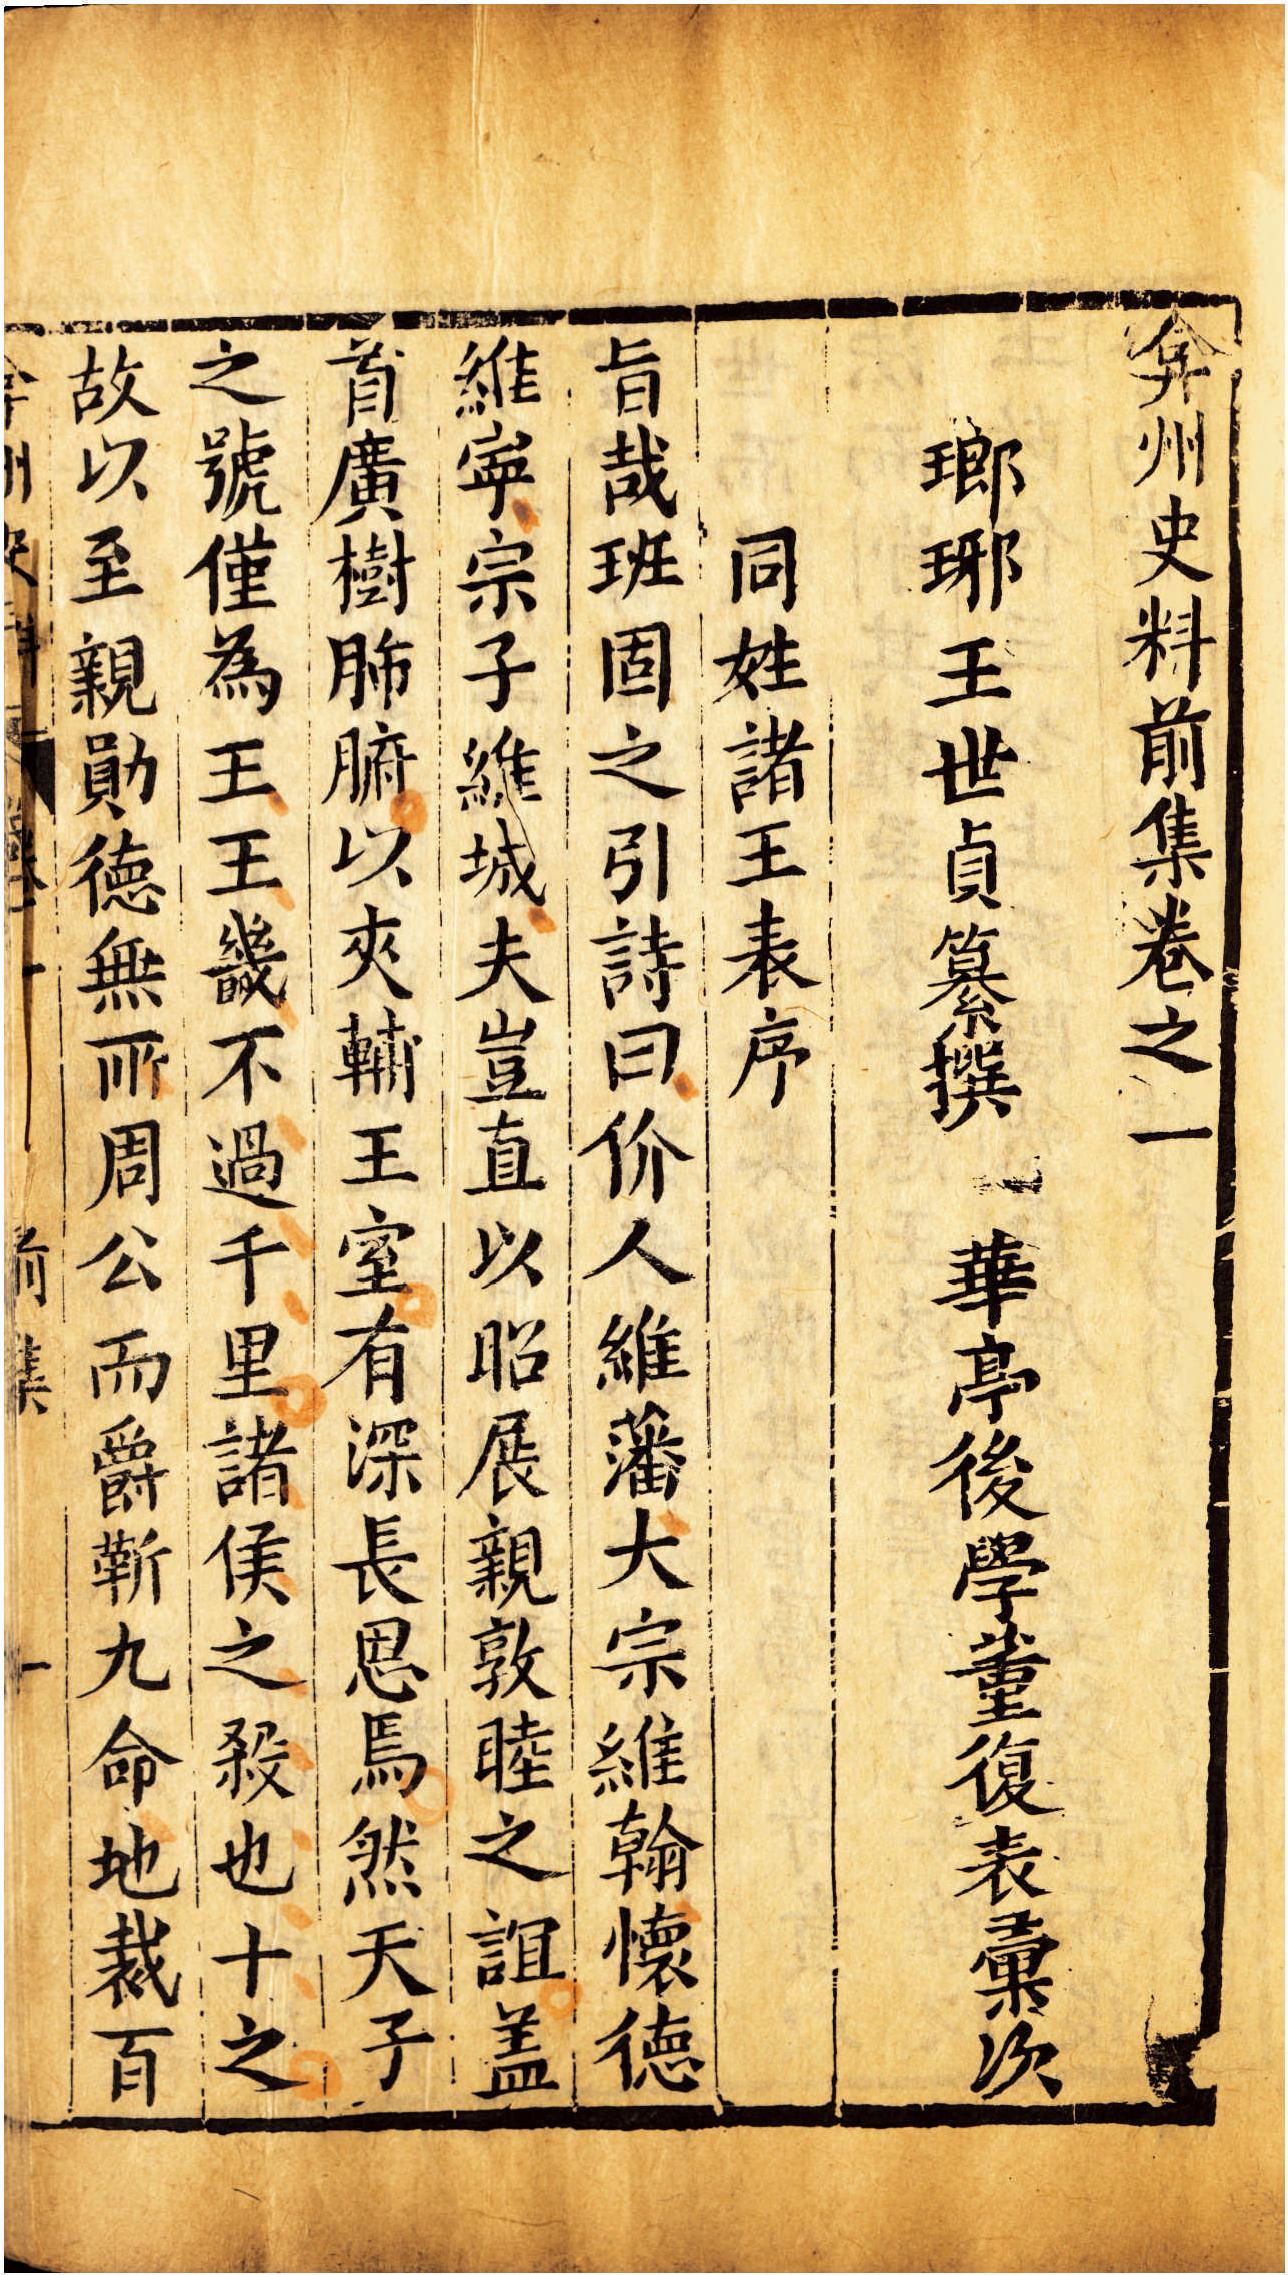 弇州史料前集卷之一
瑯琊王世貞纂撰　華亭後學董復表彙次
同姓諸王表序
旨哉班固之引詩曰价人維藩大宗維翰懷德
維寧宗子維城夫豈直以昭展親敦睦之誼盖
首廣樹肺腑以夾輔王室有深長思焉然天子
之號僅為王王畿不過千里諸侯之殺也十之
故以至親勛德無所周公而爵靳九命地裁百